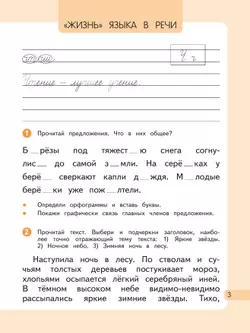 «ЖИЗНЬ» ЯЗЫКА В РЕЧИ
Ч ч
Чтение – лучшее учение.
1 Прочитай предложения. Что в них общее?
Б __ рёзы под тяжест __ ю снега согну-
лис __ до самой з __ мли. На серё __ ках у
берё __ сверкают капли д __ ждя. М __ лодые
берё __ ки уже пож __ лтели.
• Определи орфограммы и вставь буквы.
• Покажи графически связь главных членов предложения.
2 Прочитай текст. Выбери и подчеркни заголовок, наибо-
лее точно отражающий тему текста: 1) Яркие звёзды.
2) Ночное небо, 3) Зимняя ночь в лесу.
Наступила ночь в лесу. По стволам и су-
чьям толстых деревьев постукивает мороз,
хлопьями осыпается лёгкий серебряный иней.
В тёмном высоком небе видимо-невидимо
рассыпались яркие зимние звёзды. Тихо,
3